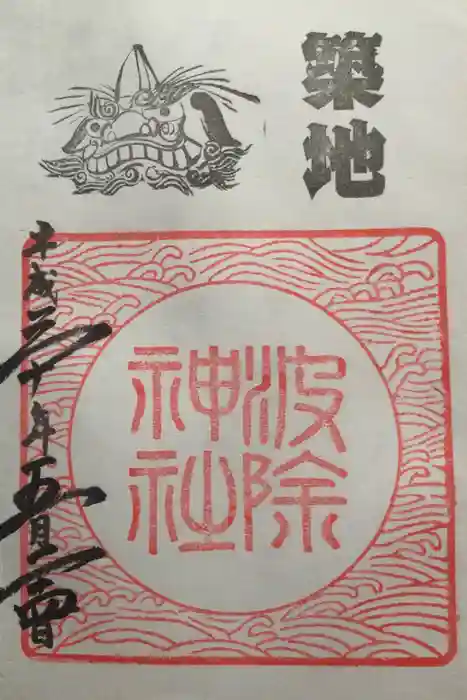 築地
波除
神社
平成三十年五月三日